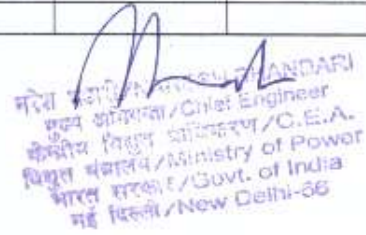 BHANDARI
मुख्य अभियन्ता/Chief Engineer
केन्द्रीय विद्युत प्राधिकरण/C.E.A.
विद्युत मंत्रालय/Ministry of Power
भारत सरकार/Govt. of India
नई दिल्ली/New Delhi-66